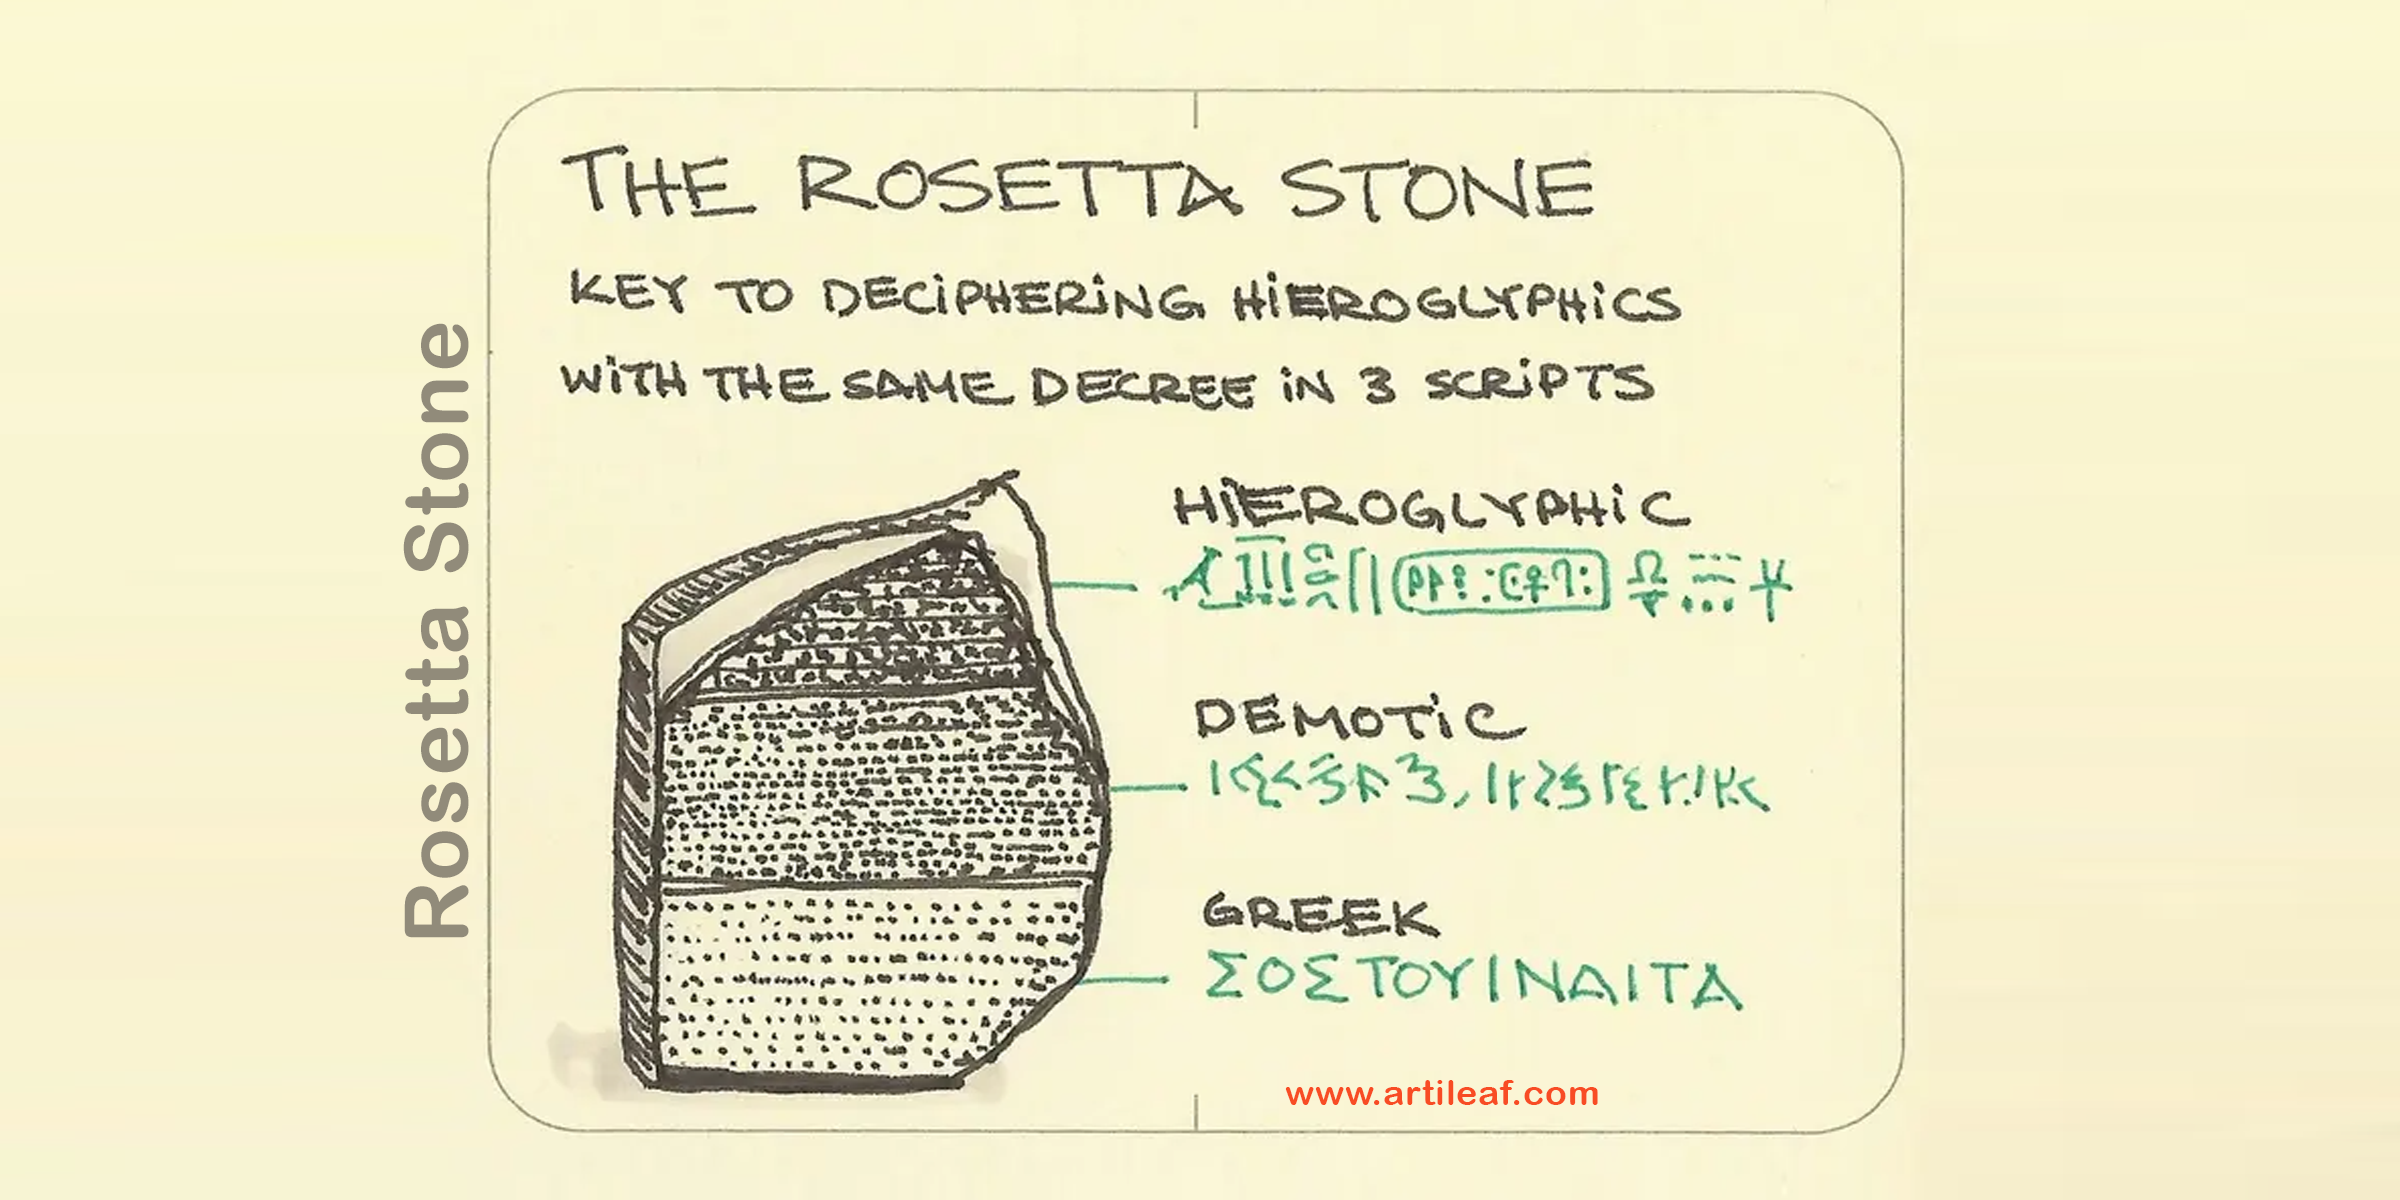 THE ROSETTA STONE
KEY TO DECIPHERING HIEROGLYPHICS
WITH THE SAME DECREE IN 3 SCRIPTS
Rosetta Stone
HIEROGLYPHIC
DEMOTIC
GREEK
ΣΟΣΤΟΥΙΝΑΙΤΑ
www.artileaf.com